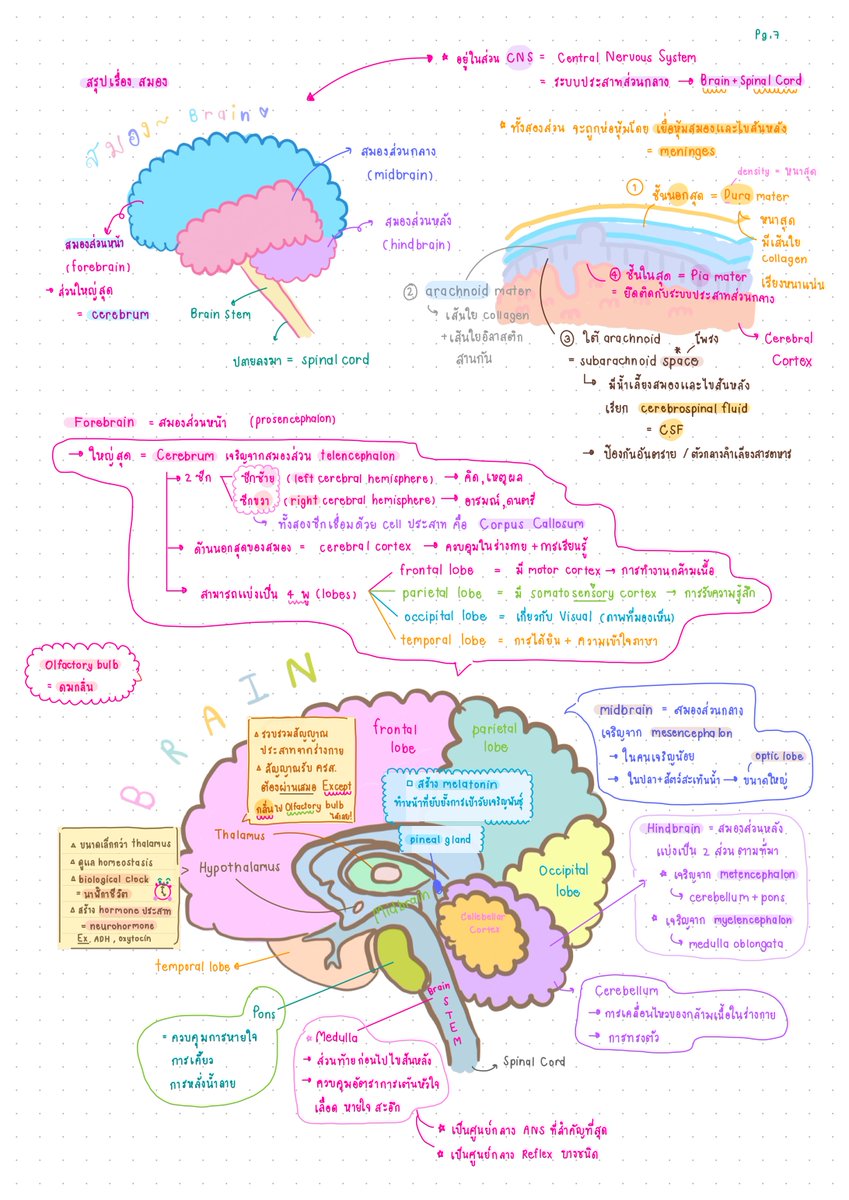 Pg.7
สรุปเรื่อง สมอง
* อยู่ในส่วน CNS = Central Nervous System
= ระบบประสาทส่วนกลาง → Brain + Spinal Cord
สมอง~ Brain
* ทั้งสองส่วน จะถูกห่อหุ้มโดย เยื่อหุ้มสมองและไขสันหลัง
= meninges
density = หนาสุด
สมองส่วนกลาง
(midbrain)
สมองส่วนหลัง
(hindbrain)
สมองส่วนหน้า
(forebrain)
→ ส่วนใหญ่สุด
= cerebrum
Brain Stem
ปลายลงมา = spinal cord
① ชั้นนอกสุด = Dura mater
หนาสุด
มีเส้นใย
collagen
เรียงหนาแน่น
② arachnoid mater
เส้นใย collagen
+ เส้นใยอิลาสติก
สานกัน
④ ชั้นในสุด = Pia mater
= ยึดติดกับระบบประสาทส่วนกลาง
③ ใต้ arachnoid
โพรง
= subarachnoid space
มีน้ำเลี้ยงสมองและไขสันหลัง
เรียก cerebrospinal fluid
= CSF
→ ป้องกันอันตราย / ตัวกลางลำเลียงสารอาหาร
Cerebral
Cortex
Forebrain = สมองส่วนหน้า (prosencephalon)
→ ใหญ่สุด = Cerebrum เจริญจากสมองส่วน telencephalon
→ 2 ซีก
ซีกซ้าย (left cerebral hemisphere) → คิด, เหตุผล
ซีกขวา (right cerebral hemisphere) → อารมณ์, ดนตรี
ทั้งสองซีกเชื่อมด้วย cell ประสาท คือ Corpus Callosum
→ ด้านนอกสุดของสมอง = cerebral cortex → ควบคุมในร่างกาย + การเรียนรู้
→ สามารถแบ่งเป็น 4 พู (lobes)
frontal lobe = มี motor cortex → การทำงานกล้ามเนื้อ
parietal lobe = มี somatosensory cortex → การรับความรู้สึก
occipital lobe = เกี่ยวกับ Visual (ภาพที่มองเห็น)
temporal lobe = การได้ยิน + ความเข้าใจภาษา
Olfactory bulb
= ดมกลิ่น
BRAIN
△ รวบรวมสัญญาณ
ประสาทจากร่างกาย
△ สัญญาณรับ ครส.
ต้องผ่านเสมอ Except
กลิ่นไป Olfactory bulb
ได้เลย!
frontal
lobe
parietal
lobe
□ สร้าง melatonin
ทำหน้าที่ยับยั้งการเข้าวัยเจริญพันธุ์
pineal gland
Thalamus
Hypothalamus
midbrain
Occipital
lobe
Cellebellar
Cortex
△ ขนาดเล็กกว่า thalamus
△ ดูแล homeostasis
△ biological clock
= นาฬิกาชีวิต
△ สร้าง hormone ประสาท
= neurohormone
Ex. ADH, oxytocin
temporal lobe
midbrain = สมองส่วนกลาง
เจริญจาก mesencephalon
→ ในคนเจริญน้อย
optic lobe
→ ในปลา+สัตว์สะเทินน้ำ → ขนาดใหญ่
Hindbrain = สมองส่วนหลัง
แบ่งเป็น 2 ส่วน ตามที่มา
* เจริญจาก metencephalon
cerebellum + pons
* เจริญจาก myelencephalon
medulla oblongata
Cerebellum
→ การเคลื่อนไหวของกล้ามเนื้อในร่างกาย
→ การทรงตัว
Pons
= ควบคุมการหายใจ
การเคี้ยว
การหลั่งน้ำลาย
Brain
STEM
Spinal Cord
* Medulla
→ ส่วนท้ายก่อนไปไขสันหลัง
→ ควบคุมอัตราการเต้นหัวใจ
เลือด หายใจ สะอึก
* เป็นศูนย์กลาง ANS ที่สำคัญที่สุด
* เป็นศูนย์กลาง Reflex บางชนิด